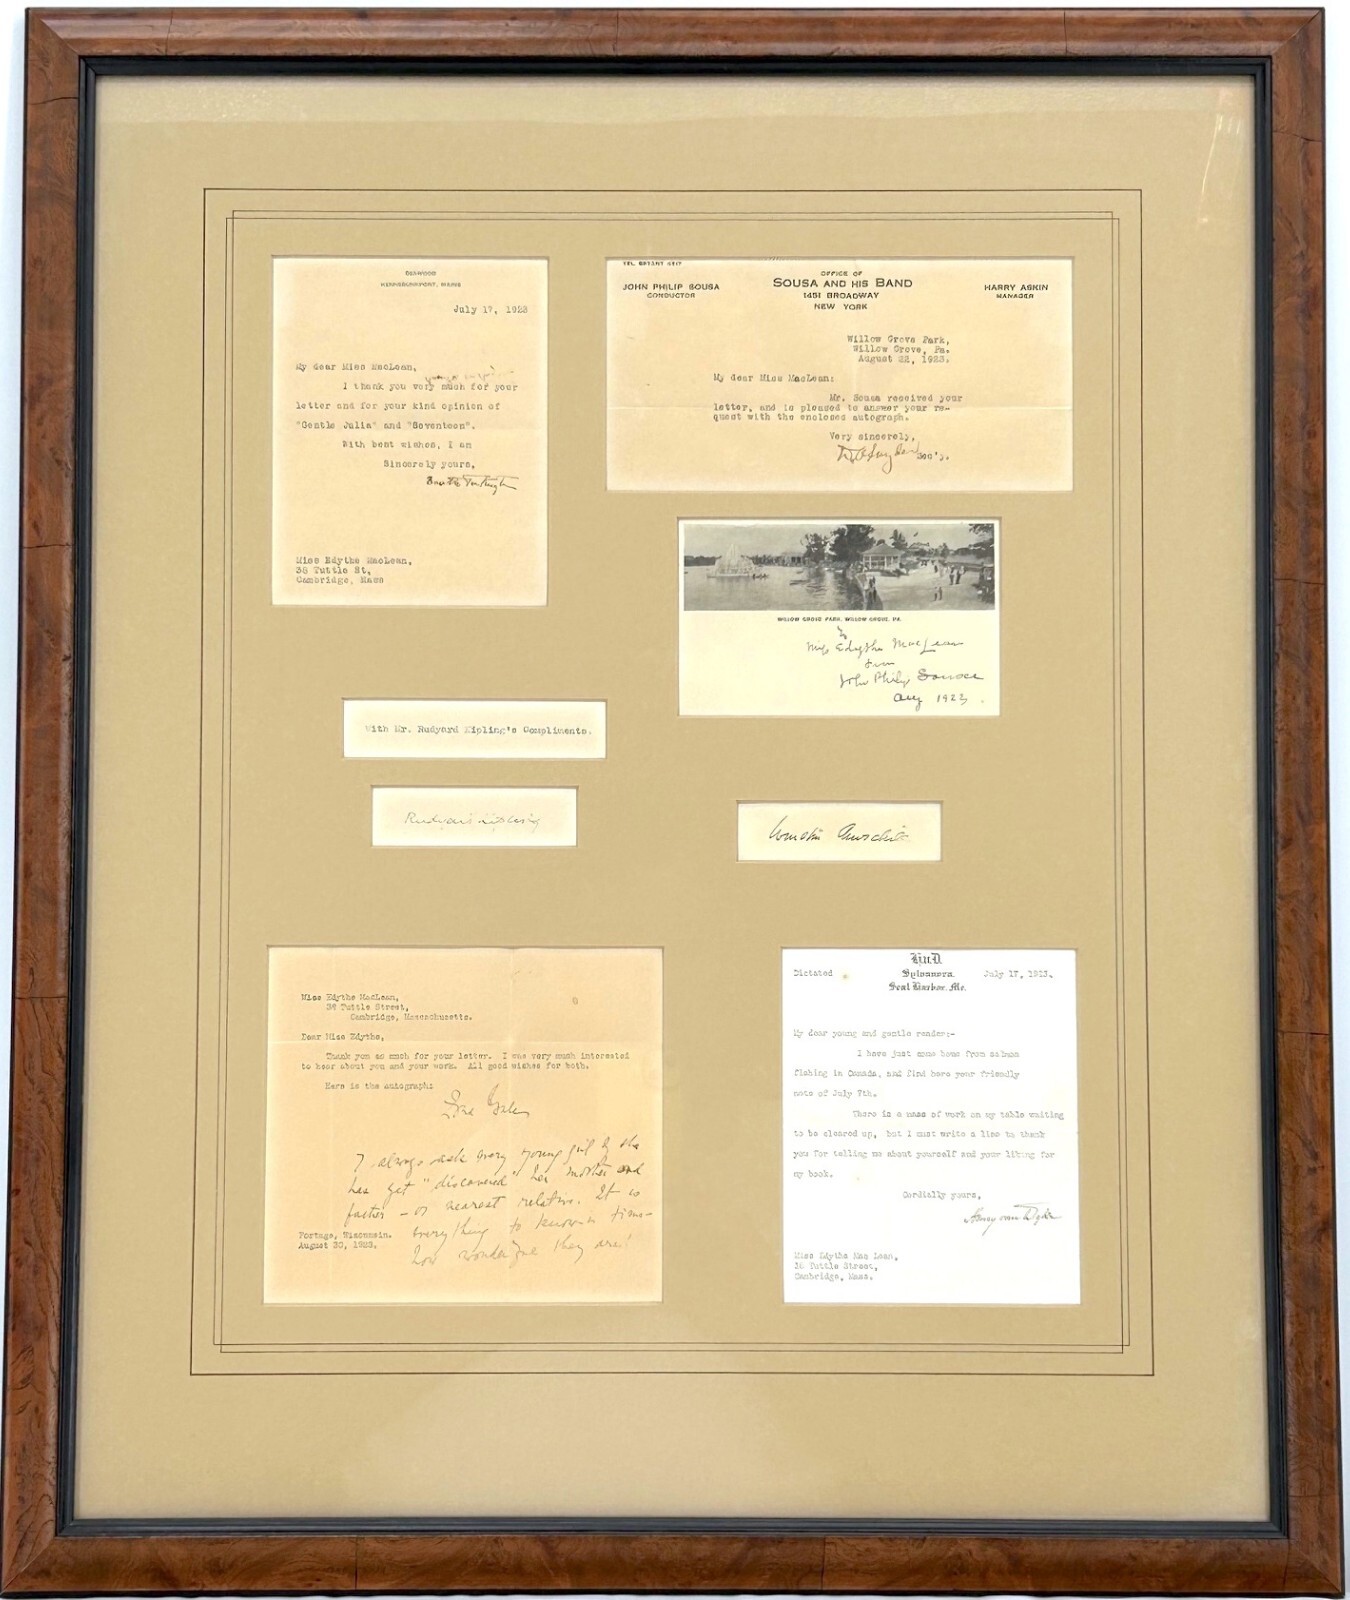 SEAWOOD
KENNEBUNKPORT, MAINE
July 17, 1923
My dear Miss MacLean,
I thank you very much for your
letter and for your kind opinion of
"Gentle Julia" and "Seventeen".
With best wishes, I am
Sincerely yours,
Booth Tarkington
Miss Edythe MacLean,
38 Tuttle St,
Cambridge, Mass
TEL. BRYANT
OFFICE OF
SOUSA AND HIS BAND
1451 BROADWAY
NEW YORK
JOHN PHILIP SOUSA
CONDUCTOR
HARRY ASKIN
MANAGER
Willow Grove Park,
Willow Grove, Pa.
August 22, 1923.
My dear Miss MacLean:
Mr. Sousa received your
letter, and is pleased to answer your re-
quest with the enclosed autograph.
Very sincerely,
Sec'y.
WILLOW GROVE PARK, WILLOW GROVE, PA.
To
Miss Edythe MacLean
from
John Philip Sousa
Aug 1923.
With Mr. Rudyard Kipling's Compliments.
Rudyard Kipling
Winston Churchill
Miss Edythe MacLean,
38 Tuttle Street,
Cambridge, Massachusetts.
Dear Miss Edythe,
Thank you so much for your letter. I was very much interested
to hear about you and your work. All good wishes for both.
Here is the autograph:
Zona Gale
I always ask every young girl if she
has yet "discovered" her mother and
father – or nearest relative. It is
everything to know in time –
how wonderful they are!
Portage, Wisconsin.
August 30, 1923.
Dictated
H.v.D.
Sylvanora.
Seal Harbor, Me.
July 17, 1923.
My dear young and gentle reader:-
I have just come home from salmon
fishing in Canada, and find here your friendly
note of July 7th.
There is a mass of work on my table waiting
to be cleared up, but I must write a line to thank
you for telling me about yourself and your liking for
my book.
Cordially yours,
Henry van Dyke
Miss Edythe Mac Lean,
38 Tuttle Street,
Cambridge, Mass.